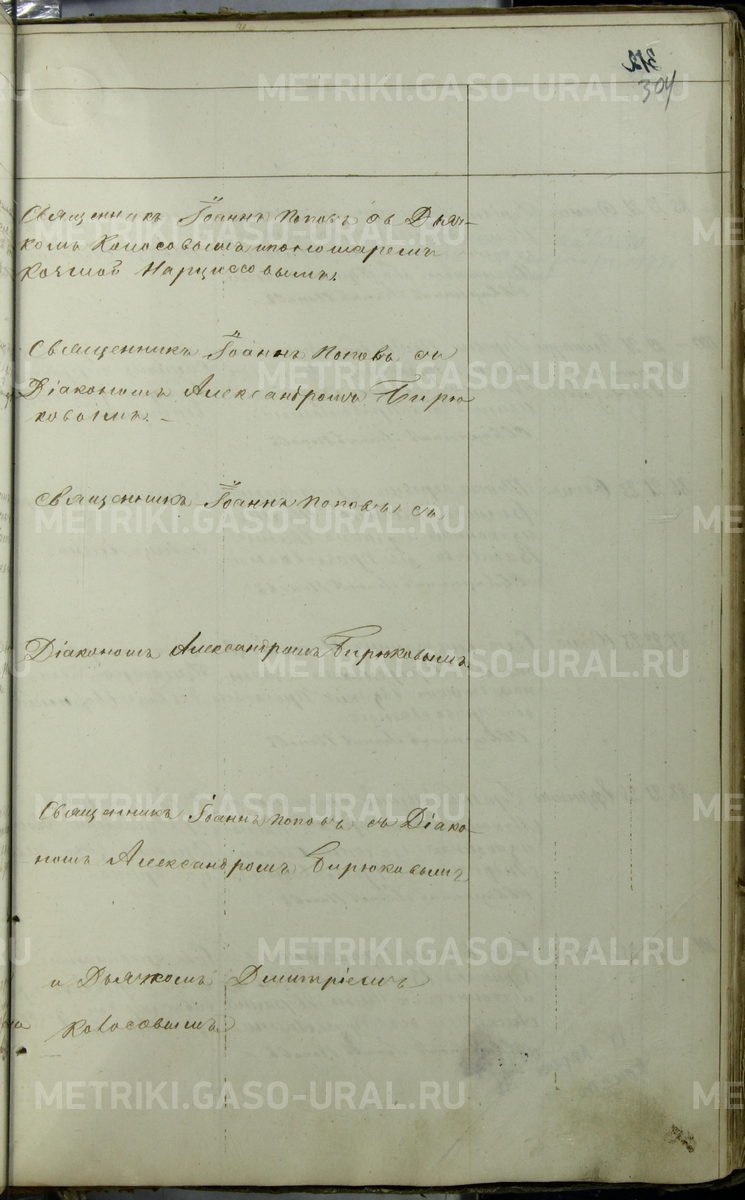 312
304
Священникъ Іоаннъ Поповъ съ Дьяч-
комъ Колосовымъ и пономаремъ
Козмой Нарциссовымъ.
Священникъ Іоаннъ Поповъ съ
Діакономъ Александромъ Бирю
ковымъ.
Священникъ Іоаннъ Поповъ съ
Діакономъ Александромъ Бирюковымъ.
Священникъ Іоаннъ Поповъ съ Діако-
номъ Александромъ Бирюковымъ
и Дьячкомъ Дмитріемъ
Колосовымъ
METRIKI.GASO-URAL.RU